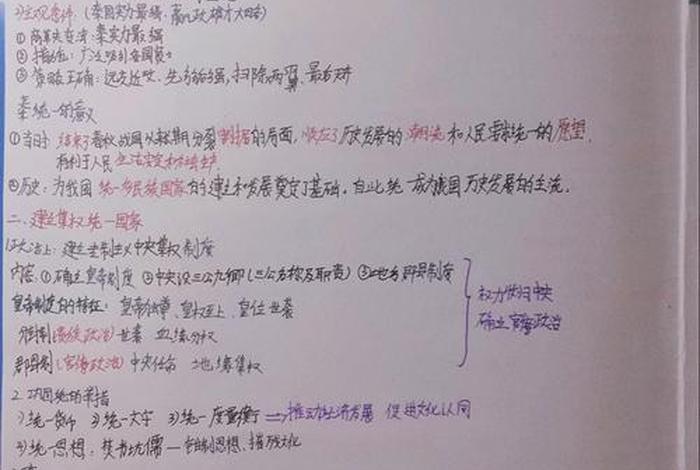 2)主观条件:(秦国实力最强,嬴政雄才大略)
①商鞅变法:秦实力最强
②措施:广泛吸引各国贤士
③策略正确:远交近攻,先弱后强,扫除两翼,最后
秦统一的意义
①当时:结束了春秋战国以来长期分裂割据的局面,顺应了历史发展的潮流和人民要求统一的愿望,
有利于人民生活安定和社会生产
②历史:为我国统一多民族国家的建立和发展奠定了基础。自此统一成为我国历史发展的主流。
二、建立集权统一国家
1.政治上:建立专制主义中央集权制度
内容:①确立皇帝制度 ②中央设三公九卿(三公名称及职责) ③地方郡县制度
皇帝制度的特征:皇帝独尊、皇权至上、皇位世袭
分封制(贵族政治)世袭 血缘分权
郡县制(官僚政治)中央任命 地缘集权
权力收归中央
确立官僚政治
2.巩固统治措施
1)统一货币 2)统一文字 3)统一度量衡⇒推动经济发展 促进文化认同
4)统一思想:焚书坑儒—钳制思想、摧残文化